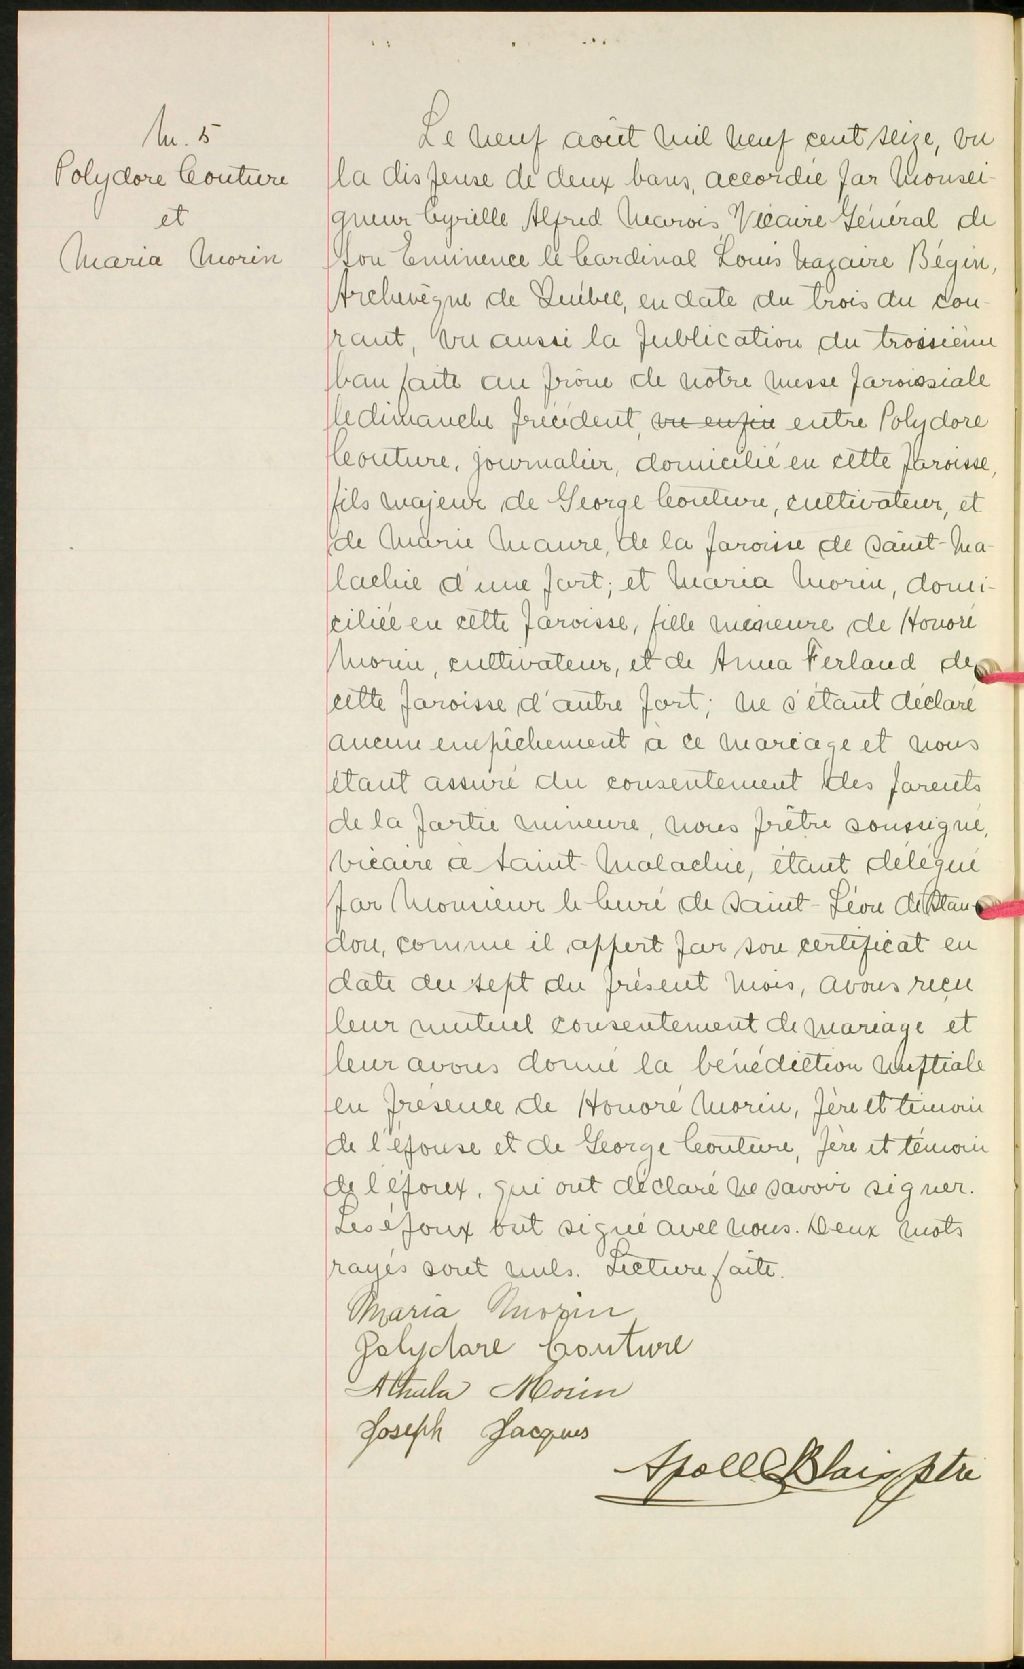 M. 5
Polydore Couture
et
Maria Morin
Le neuf août mil neuf cent seize, vu
la dispense de deux bans, accordée par Monsei-
gneur Cyrille Alfred Marois, Vicaire Général de
Son Eminence le Cardinal Louis Nazaire Bégin,
Archevêque de Québec, en date du trois du cou-
rant, vu aussi la publication du troisième
ban faite au prône de notre messe paroissiale
le dimanche précédent, vu enfin entre Polydore
Couture, journalier, domicilié en cette paroisse,
fils majeur de George Couture, cultivateur, et
de Marie Maure, de la paroisse de Saint-Ma-
lachie d'une part; et Maria Morin, domi-
ciliée en cette paroisse, fille mineure de Honoré
Morin, cultivateur, et de Anna Ferland de
cette paroisse d'autre part; ne s'étant déclaré
aucun empêchement à ce mariage et nous
étant assuré du consentement des parents
de la partie mineure, nous prêtre soussigné,
vicaire à Saint-Malachie, étant délégué
par Monsieur le Curé de Saint-Léon de Stan-
don, comme il appert par son certificat en
date du sept du présent mois, avons reçu
leur mutuel consentement de mariage et
leur avons donné la bénédiction nuptiale
en présence de Honoré Morin, père et témoin
de l'épouse et de George Couture, père et témoin
de l'époux, qui ont déclaré ne savoir signer.
Les époux ont signé avec nous. Deux mots
rayés sont nuls. Lecture faite.
Maria Morin
Polydore Couture
Morin
Joseph Jacques
Apoll Blais ptre